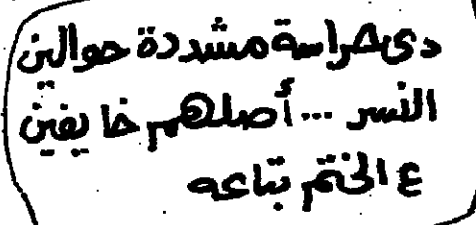 دى حراسة مشددة حوالين
النسر ... أصلهم خايفين
ع الختم بتاعه